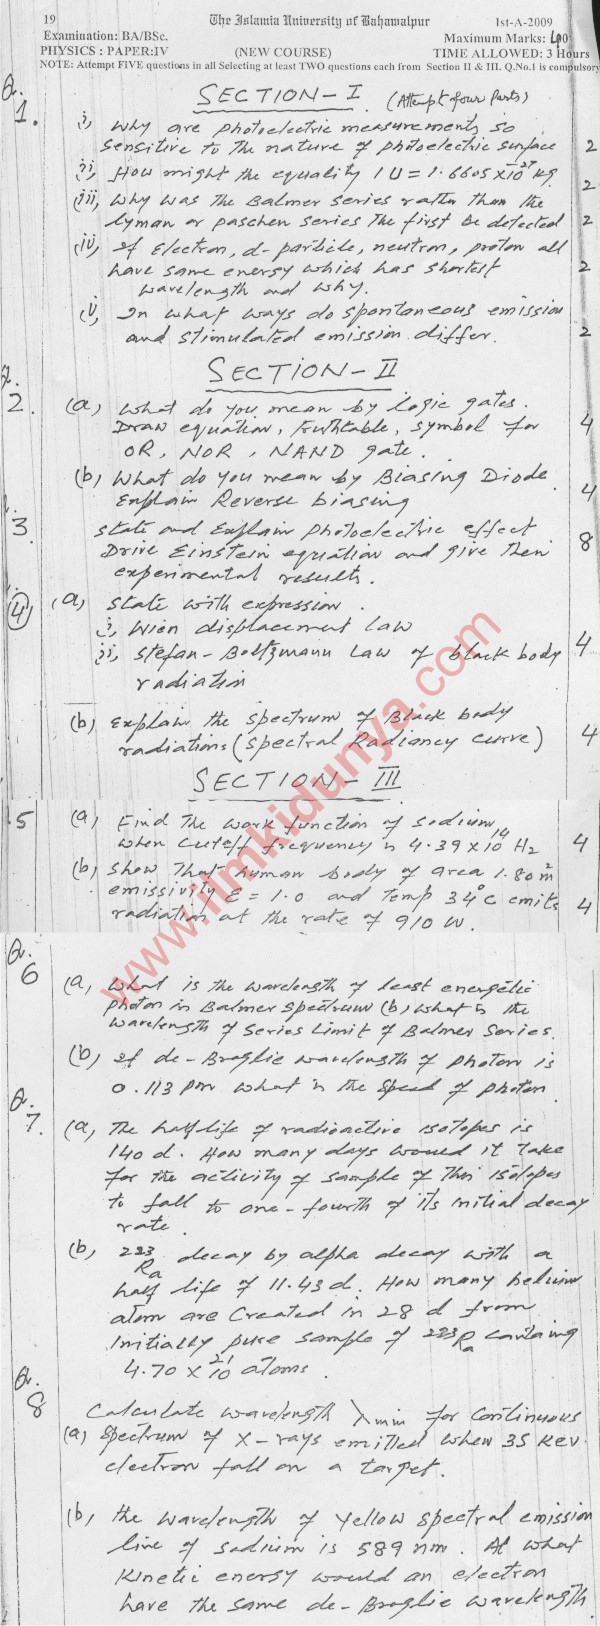 19 The Islamia University of Bahawalpur 1st-A-2009
Examination: BA/BSc. Maximum Marks: 40
PHYSICS : PAPER:IV (NEW COURSE) TIME ALLOWED: 3 Hours
NOTE: Attempt FIVE questions in all Selecting at least TWO questions each from Section II & III. Q.No.1 is compulsory
Q.1. SECTION-I (Attempt four Parts)
i, why are photoelectric measurements so
sensitive to the nature of photoelectric surface 2
ii, How might the equality 1U = 1.6605 x 10^27 kg. 2
iii, why was the Balmer series rather than the
lyman or paschen series the first be detected 2
iv, if Electron, α-particle, neutron, proton all
have same energy which has shortest 2
wavelength and why.
v, In what ways do spontaneous emission
and stimulated emission differ. 2
SECTION-II
2. (a) what do you mean by logic gates.
Draw equation, truthtable, symbol for 4
OR, NOR, NAND gate.
(b) What do you mean by Biasing Diode
Explain Reverse biasing 4
3. State and Explain photoelectric effect
Drive Einstein equation and give then 8
experimental results.
(4) (a) State with expression.
i, Wien displacement law
ii, Stefan-Boltzmann Law of black body 4
radiation
(b) explain the spectrum of Black body
radiations (Spectral Radiancy curve) 4
SECTION-III
5 (a, Find The work function of sodium
when cutoff frequency is 4.39 x 10^14 Hz 4
(b) Show That human body of area 1.80 m^2
emissivity E = 1.0 and temp 34°C emits 4
radiation at the rate of 910 W.
Q.6 (a, What is the wavelength of least energetic
photon in Balmer spectrum (b) what is the
wavelength of Series Limit of Balmer Series.
(b) if de-Broglie wavelength of photon is
0.113 pm what is the speed of photon
Q.7. (a, The half life of radioactive isotopes is
140 d. How many days would it take
for the activity of sample of this isotopes
to fall to one-fourth of its initial decay
rate.
(b) 223Ra decay by alpha decay with a
half life of 11.43 d. How many helium
atom are Created in 28 d from
Initially pure sample of 223Ra containg
4.70 x 10^21 atoms.
Q.8 Calculate wavelength λmin for continuous
(a) Spectrum of X-rays emitted when 35 kev
electron fall on a target.
(b, the wavelength of Yellow spectral emission
line of sodium is 589 nm. At what
Kinetic energy would an electron
have the same de-Broglie wavelength
www.ilmkidunya.com